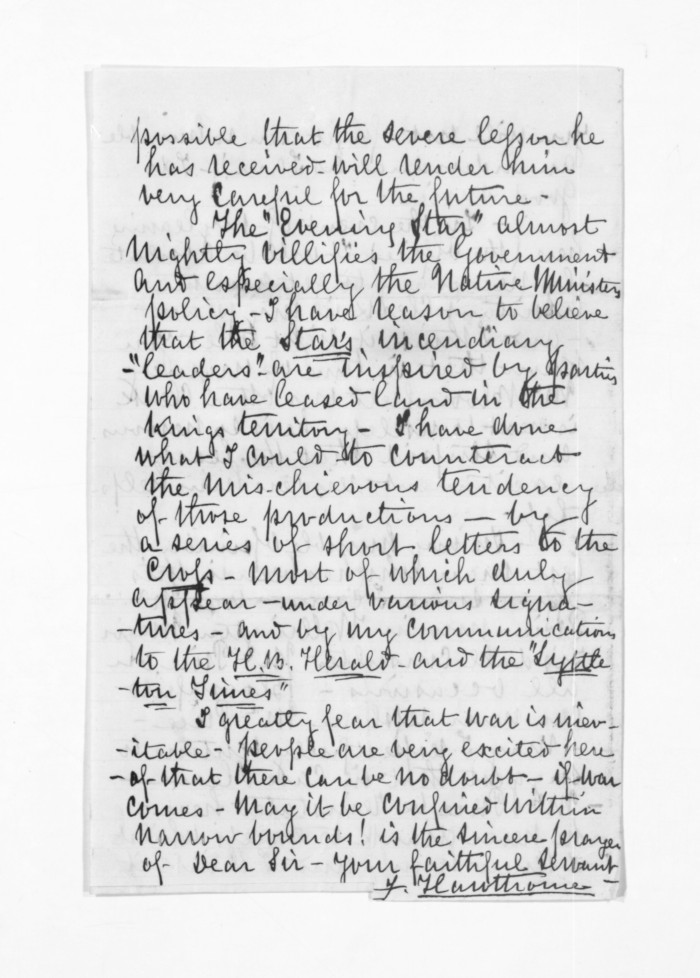 possible that the severe lesson he
has received - will render him
very careful for the future -
The "Evening Star" almost
Nightly villifies the Government
and especially the Native Ministers
policy - I have reason to believe
that the Star's incendiary
- "leaders" - are inspired by parties
who have leased land in the
Kings territory - I have done
what I could to counteract
the mis-chievous tendency
of those productions - by
a series of short letters to the
Cross - most of which duly
appear - under various signa-
-tures - and by my communications
to the H.B. Herald - and the "Lyttle
-ton Times"
I greatly fear that war is inev-
-itable - people are very excited here
- of that there can be no doubt - if war
comes - May it be confined within
narrow bounds! is the sincere prayer
of Dear Sir - your faithful servant -
F. Hawthorne